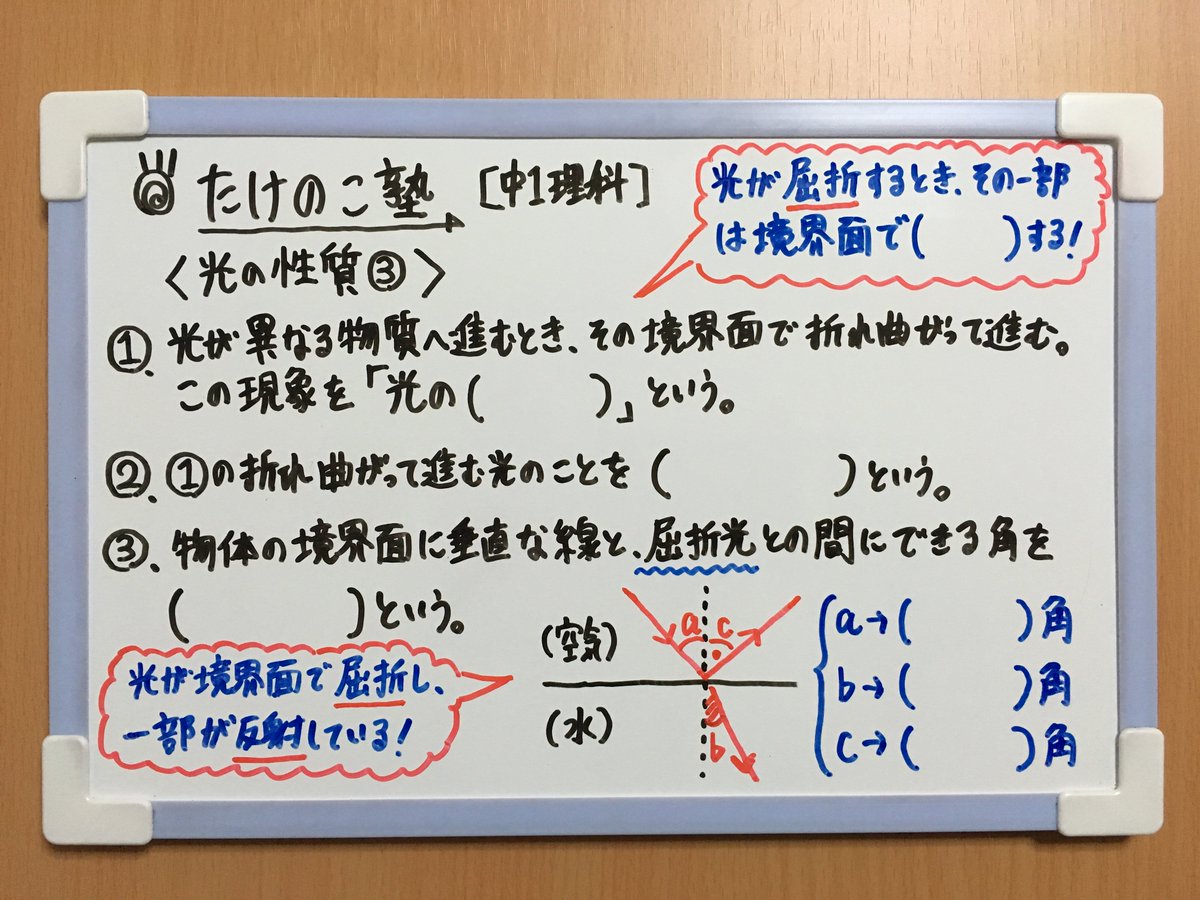 たけのこ塾 [中1理科]
<光の性質③>
光が屈折するとき、その一部
は境界面で(　　　)する!
①. 光が異なる物質へ進むとき、その境界面で折れ曲がって進む。
この現象を「光の(　　　)」という。
②. ①の折れ曲がって進む光のことを(　　　)という。
③. 物体の境界面に垂直な線と、屈折光との間にできる角を
(　　　)という。
光が境界面で屈折し、
一部が反射している!
(空気)
(水)
a c
b
a→(　　　)角
b→(　　　)角
c→(　　　)角